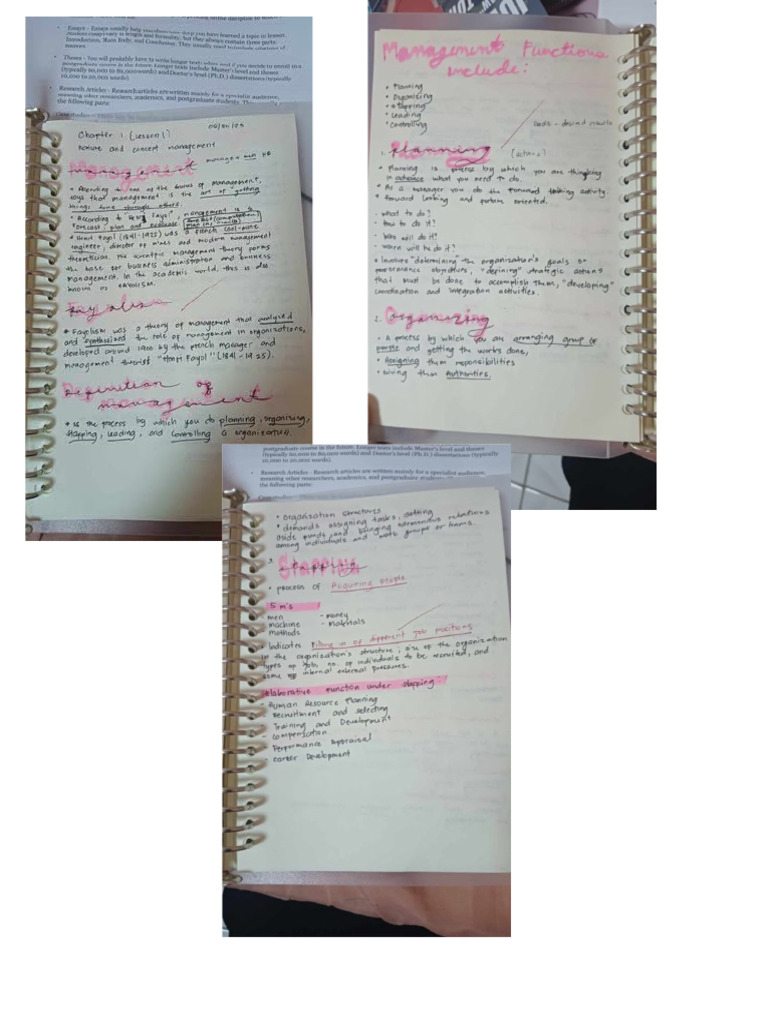 • Essays - Essays usually help
Introduction, Main Body, and Conclusion. They usually
sources.
• Theses - You will probably have to write longer texts when and if you decide to enroll in a
postgraduate course in the future. Longer texts include Master's level and theses
(typically 20,000 to 82,000 words) and Doctor's level (Ph.D.) dissertations (typically
10,000 to 20,000 words)
• Research Articles - Research articles are written mainly for a specialist audience,
meaning other researchers, academics, and postgraduate students.
the following parts:
Chapter 1 (Lesson 1)
Nature and concept management
Management
• According to one of the
says that management is the art of getting
things done through others.
• According to "Henri Fayol", management is a
Forecast, plan and
• Henri Fayol (1841-1925) was a french coal-mine
engineer, director of mines and modern management
theoretician. The scientific management theory forms
the base for business administration and business
management. In the academic world, this is also
known as Fayolism.
Fayolism
• Fayolism was a theory of management that analyzed
and synthesized the role of management in organizations,
developed around 1900 by the french manager and
management theorist "Henri Fayol" (1841-1925).
Definition of
management
• Is the process by which you do planning, organizing,
staffing, leading, and controlling a organization.
Management Functions
include:
• Planning
• Organizing
• Staffing
• Leading
• Controlling
leads - desired results
1. Planning
• Planning is process by which you are thinking
in advance what you need to do.
• As a manager you do the forward looking activity.
• Forward looking and
- What to do?
- How to do it?
- Who will do it?
- When will he do it?
• Involve "determining" the organization's goals or
performance objectives, "defining" strategic actions
that must be done to accomplish them, "developing"
coordination and integration activities.
2. Organizing
• A process by which you are arranging group of
people and getting the works done,
• Assigning them responsibilities
• Giving them authorities.
postgraduate course in the future. Longer texts include Master's level and theses
(typically 20,000 to 82,000 words) and Doctor's level (Ph.D.) dissertations (typically
10,000 to 20,000 words)
• Research Articles - Research articles are written mainly for a specialist audience,
meaning other researchers, academics, and postgraduate
the following parts:
• organization structures
• demands assigning tasks, setting
aside funds, and bringing harmonious relations
among individuals and work groups or teams.
3. Staffing
• process of Acquiring people
5 m's
men - money
machine - materials
methods
• Indicates filling in of different job positions
in the organization's structure; size of the organization
types of job, no. of individuals to be recruited, and
some of internal external pressures.
Elaborative Function under staffing:
- Human Resource Planning
- Recruitment and selecting
- Training and Development
- Compensation
- Performance Appraisal
- Career Development